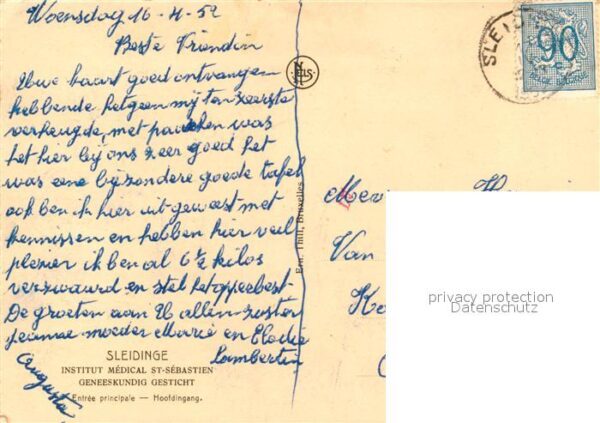 Woensdag 16-4-52
Beste Vriendin
Uwe kaart goed ontvangen
hebbende hetgeen mij ten zeerste
verheugde, met paaschen was
het hier bij ons zeer goed het
was eene bijzondere goede tafel
ook ben ik hier uit geweest met
kennissen en hebben hier veel
plezier ik ben al 6½ kilos
verzwaard en stel het opperbest
De groeten aan U allen zuster
jeanne moeder Marie en Elodie
Lambertin
Augusta
SLEIDINGE
INSTITUT MÉDICAL ST-SÉBASTIEN
GENEESKUNDIG GESTICHT
Entrée principale — Hoofdingang.
NELS
Ern. Thill, Bruxelles
SLEI
90
Mev
Van
privacy protection
Datenschutz